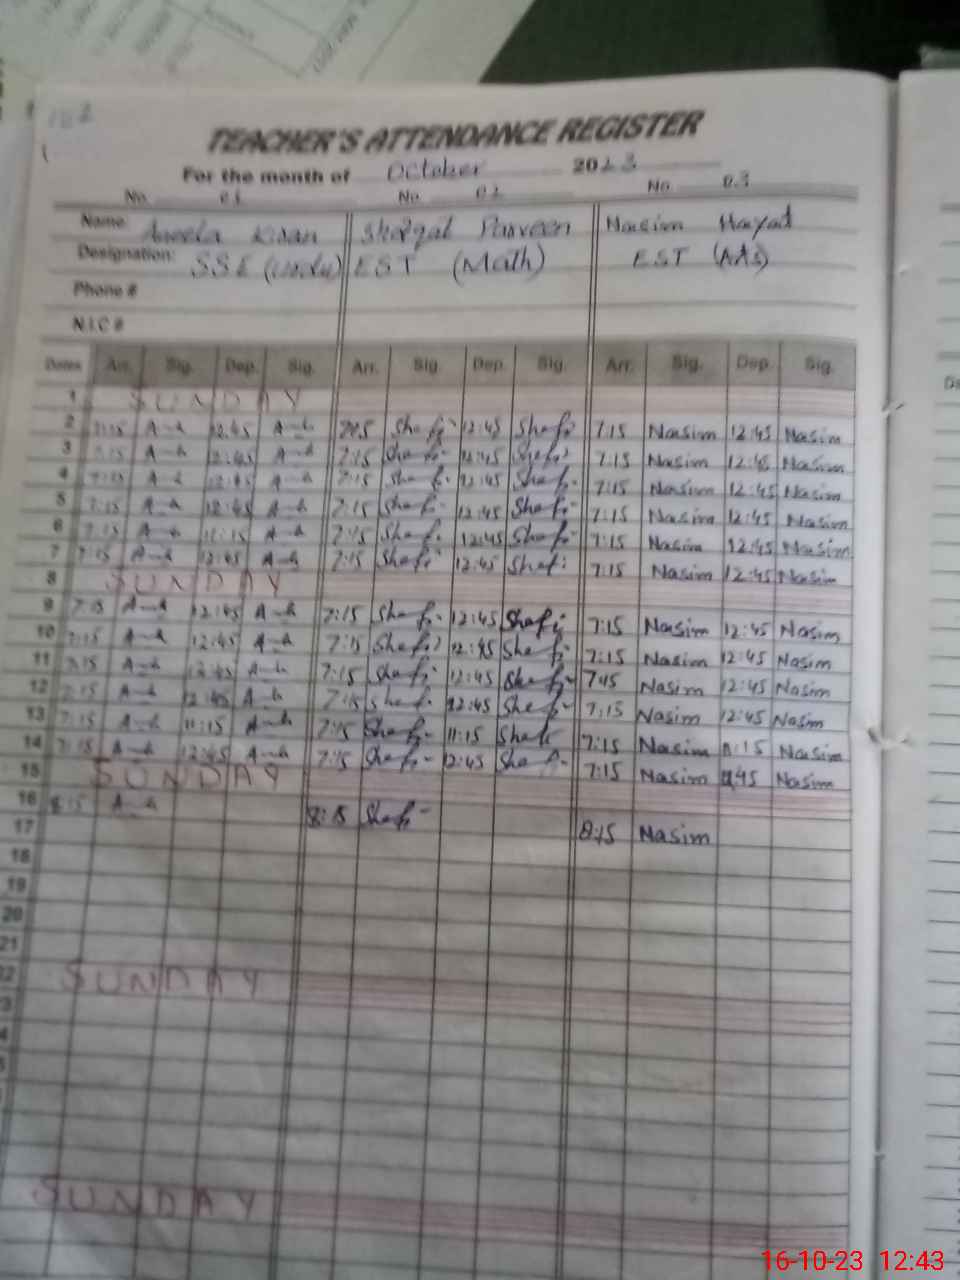 TEACHER'S ATTENDANCE REGISTER
For the month of October 2023
No. 01 No. 02 No. 03
Name: Aneela Kiran Shafqat Parveen Nasim Hayat
Designation: SSE (Urdu) EST (Math) EST (Arts)
Phone #
N.I.C #
Dates Arr. Sig. Dep. Sig. Arr. Sig. Dep. Sig. Arr. Sig. Dep. Sig.
1 SUNDAY
2 7:15 12:45 7:15 Shafi 12:45 Shafi 7:15 Nasim 12:45 Nasim
3 7:15 12:45 7:15 Shafi 12:45 Shafi 7:15 Nasim 12:45 Nasim
4 7:15 12:45 7:15 Shafi 12:45 Shafi 7:15 Nasim 12:45 Nasim
5 7:15 12:45 7:15 Shafi 12:45 Shafi 7:15 Nasim 12:45 Nasim
6 7:15 11:15 7:15 Shafi 12:45 Shafi 7:15 Nasim 12:45 Nasim
7 7:15 12:45 7:15 Shafi 12:45 Shafi 7:15 Nasim 12:45 Nasim
8 SUNDAY
9 7:15 12:45 7:15 Shafi 12:45 Shafi 7:15 Nasim 12:45 Nasim
10 7:15 12:45 7:15 Shafi 12:45 Shafi 7:15 Nasim 12:45 Nasim
11 7:15 12:45 7:15 Shafi 12:45 Shafi 7:15 Nasim 12:45 Nasim
12 7:15 12:45 7:15 Shafi 12:45 Shafi 7:15 Nasim 12:45 Nasim
13 7:15 11:15 7:15 Shafi 11:15 Shafi 7:15 Nasim 11:15 Nasim
14 7:15 12:45 7:15 Shafi 12:45 Shafi 7:15 Nasim 12:45 Nasim
15 SUNDAY
16 8:15 8:15 Shafi 8:15 Nasim
17
18
19
20
21
SUNDAY
SUNDAY
16-10-23 12:43